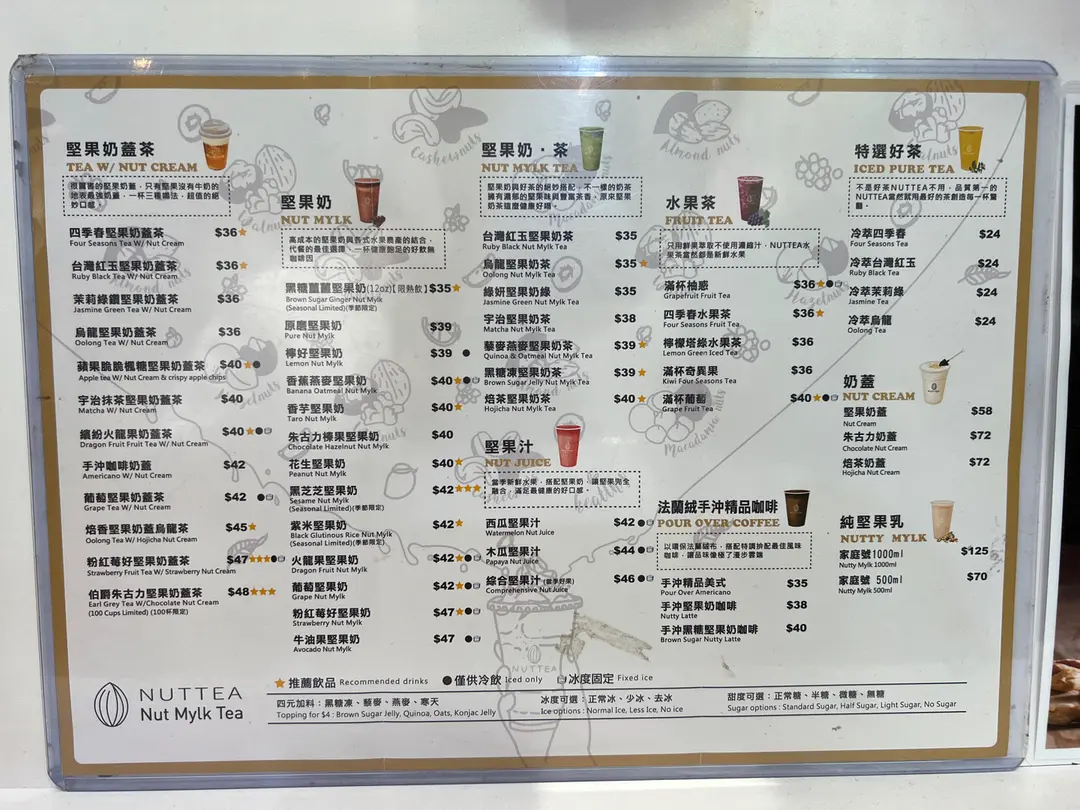 堅果奶蓋茶
TEA W/ NUT CREAM
很厲害的堅果奶蓋，只有堅果沒有牛奶的
地表最強奶蓋，一杯三種喝法，超值的絕
妙口感。
四季春堅果奶蓋 $36★
Four Seasons Tea W/ Nut Cream
台灣紅玉堅果奶蓋茶 $36★
Ruby Black Tea W/ Nut Cream
茉莉綠鑽堅果奶蓋茶 $36
Jasmine Green Tea W/ Nut Cream
烏龍堅果奶蓋茶 $36
Oolong Tea W/ Nut Cream
蘋果脆脆楓糖堅果奶蓋茶 $40★●
Apple tea W/ Nut Cream & crispy apple chips
宇治抹茶堅果奶蓋茶 $40
Matcha W/ Nut Cream
繽紛火龍果奶蓋茶 $40★●
Dragon Fruit Fruit Tea W/ Nut Cream
手沖咖啡奶蓋 $42
Americano W/ Nut Cream
葡萄堅果奶蓋茶 $42 ●
Grape Tea W/ Nut Cream
焙香堅果奶蓋烏龍茶 $45★
Oolong Tea W/ Hojicha Nut Cream
粉紅莓好堅果奶蓋茶 $47★★★●
Strawberry Fruit Tea W/ Strawberry Nut Cream
伯爵朱古力堅果奶蓋茶 $48★★★
Earl Grey Tea W/Chocolate Nut Cream
(100 Cups Limited) (100杯限定)
堅果奶
NUT MYLK
高成本的堅果奶與各式水果農產的結合，
代餐的最佳選擇，一杯健康飽足的好飲無
咖啡因
黑糖薑薑堅果奶(12oz)【限熱飲】$35★
Brown Sugar Ginger Nut Mylk
(Seasonal Limited)(季節限定)
原磨堅果奶 $39
Pure Nut Mylk
檸好堅果奶 $39 ●
Lemon Nut Mylk
香蕉燕麥堅果奶 $40★●
Banana Oatmeal Nut Mylk
香芋堅果奶 $40★
Taro Nut Mylk
朱古力榛果堅果奶 $40
Chocolate Hazelnut Nut Mylk
花生堅果奶 $40★
Peanut Nut Mylk
黑芝芝堅果奶 $42★★★
Sesame Nut Mylk
(Seasonal Limited)(季節限定)
紫米堅果奶 $42★
Black Glutinous Rice Nut Mylk
(Seasonal Limited)(季節限定)
火龍果堅果奶 $42★●
Dragon Fruit Nut Mylk
葡萄堅果奶 $42★●
Grape Nut Mylk
粉紅莓好堅果奶 $47★●
Strawberry Nut Mylk
牛油果堅果奶 $47 ●
Avocado Nut Mylk
堅果奶・茶
NUT MYLK TEA
堅果奶與好茶的絕妙搭配，不一樣的奶茶
擁有濃郁的堅果味與豐富茶香，原來堅果
奶茶這麼健康好喝。
台灣紅玉堅果奶茶 $35
Ruby Black Nut Mylk Tea
烏龍堅果奶茶 $35★
Oolong Nut Mylk Tea
綠妍堅果奶綠 $35
Jasmine Green Nut Mylk Tea
宇治堅果奶茶 $38
Matcha Nut Mylk Tea
藜麥燕麥堅果奶茶 $39★
Quinoa & Oatmeal Nut Mylk Tea
黑糖凍堅果奶茶 $39★
Brown Sugar Jelly Nut Mylk Tea
焙茶堅果奶茶 $40★
Hojicha Nut Mylk Tea
堅果汁
NUT JUICE
當季新鮮水果，搭配堅果奶，讓堅果完全
融合，滿足最健康的好口感。
西瓜堅果汁 $42●
Watermelon Nut Juice
木瓜堅果汁 $44●
Papaya Nut Juice
綜合堅果汁(當季好果) $46●
Comprehensive Nut Juice
水果茶
FRUIT TEA
只用鮮果萃取不使用濃縮汁，NUTTEA水
果茶當然都是新鮮水果
滿杯柚感 $36★●
Grapefruit Fruit Tea
四季春水果茶 $36★
Four Seasons Fruit Tea
檸檬塔綠水果茶 $36
Lemon Green Iced Tea
滿杯奇異果 $36
Kiwi Four Seasons Tea
滿杯葡萄 $40★●
Grape Fruit Tea
法蘭絨手沖精品咖啡
POUR OVER COFFEE
以環保法蘭絨布，搭配特調拚配最佳風味
咖啡，讓品味像極了漫步雲端
手沖精品美式 $35
Pour Over Americano
手沖堅果奶咖啡 $38
Nutty Latte
手沖黑糖堅果奶咖啡 $40
Brown Sugar Nutty Latte
特選好茶
ICED PURE TEA
不是好茶NUTTEA不用，品質第一的
NUTTEA當然就用最好的茶創造每一杯
冷萃四季春 $24
Four Seasons Tea
冷萃台灣紅玉 $24
Ruby Black Tea
冷萃茉莉綠 $24
Jasmine Tea
冷萃烏龍 $24
Oolong Tea
奶蓋
NUT CREAM
堅果奶蓋 $58
Nut Cream
朱古力奶蓋 $72
Chocolate Nut Cream
焙茶奶蓋 $72
Hojicha Nut Cream
純堅果乳
NUTTY MYLK
家庭號1000ml $125
Nutty Mylk 1000ml
家庭號 500ml $70
Nutty Mylk 500ml
Cashewnuts
Almond nuts
Hazelnuts
Macadamia nuts
NUTTEA
★推薦飲品 Recommended drinks ●僅供冷飲 Iced only 冰度固定 Fixed ice
NUTTEA
Nut Mylk Tea
四元加料：黑糖凍、藜麥、燕麥、寒天
Topping for $4 : Brown Sugar Jelly, Quinoa, Oats, Konjac Jelly
冰度可選：正常冰、少冰、去冰
Ice options : Normal Ice, Less Ice, No ice
甜度可選：正常糖、半糖、微糖、無糖
Sugar options : Standard Sugar, Half Sugar, Light Sugar, No Sugar